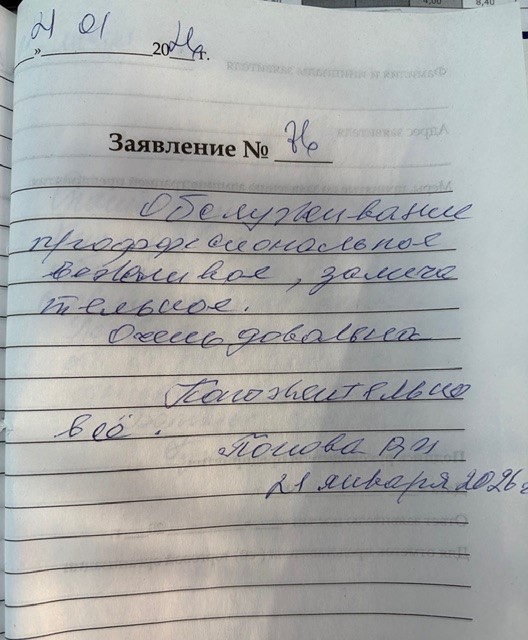 21 01 2026 г.
Заявление № 76
Обслуживание
проффесиональное
вежливое, замеча
тельное.
Очень довольна
Положительно
всё.
Попова ВН
21 января 2026 г